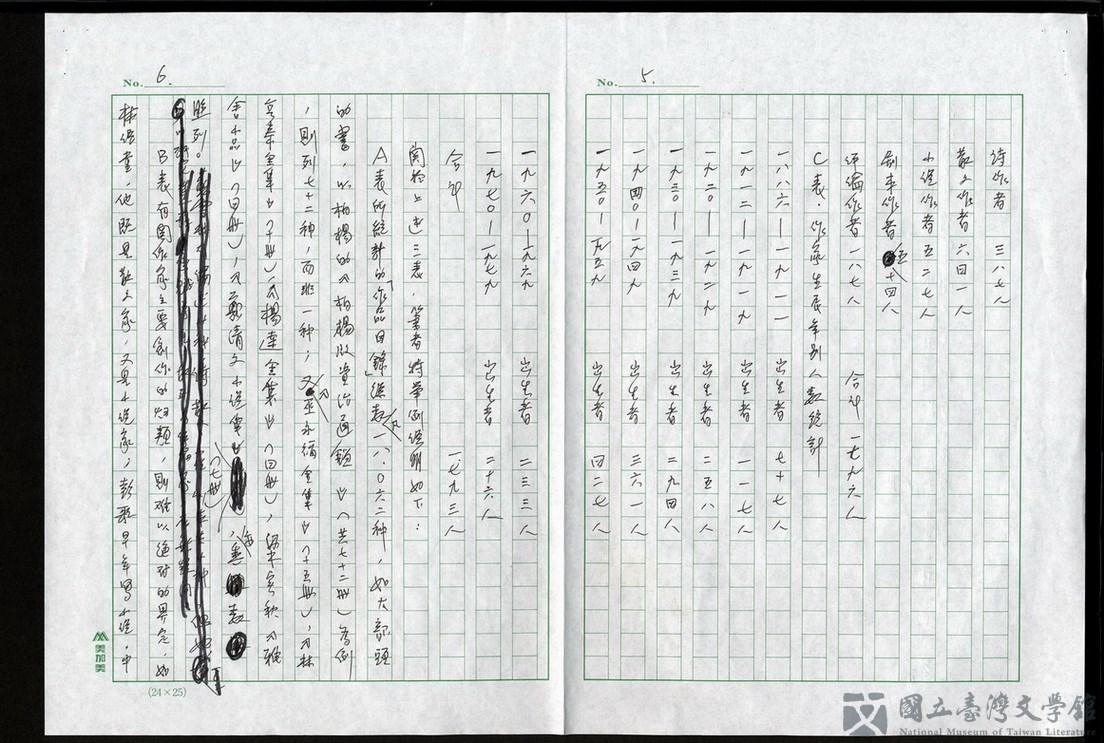 No. 5.
詩作者 三八七人
散文作者 六四一人
小說作者 五二七人
劇本作者 五十四人
評論作者 一八七人 合計 一七九六人
C表．作家生辰年別人數統計
一八八六—一九一一 出生者 七十七人
一九一二—一九一九 出生者 一一七人
一九二〇—一九二九 出生者 二五八人
一九三〇—一九三九 出生者 二九四人
一九四〇—一九四九 出生者 三六一人
一九五〇—一九五九 出生者 四二七人
No. 6.
一九六〇—一九六九 出生者 二三三人
一九七〇—一九七九 出生者 二十六人
合計 一、七九三人
關於上述三表，筆者特舉例說明如下：
A表所統計的「作品目錄」總數一八．〇六二種，如大部頭
的書，以柏楊的《柏楊版資治通鑑》（共七十二冊）為例
，則列七十二種，而非一種；《巫永福全集》（十五冊），《林
亨泰全集》（十冊）《楊逵全集》（四冊），梁實秋《雅
舍小品》（四冊），《鄭清文小說集》（七冊），悉數
照列。
B表有關作家主要創作的歸類，則難以絕對的界定，如
林海音，他既是散文家，又是小說家，彭歌早年寫小說，中
美加美
(24×25)
國立臺灣文學館
National Museum of Taiwan Literature